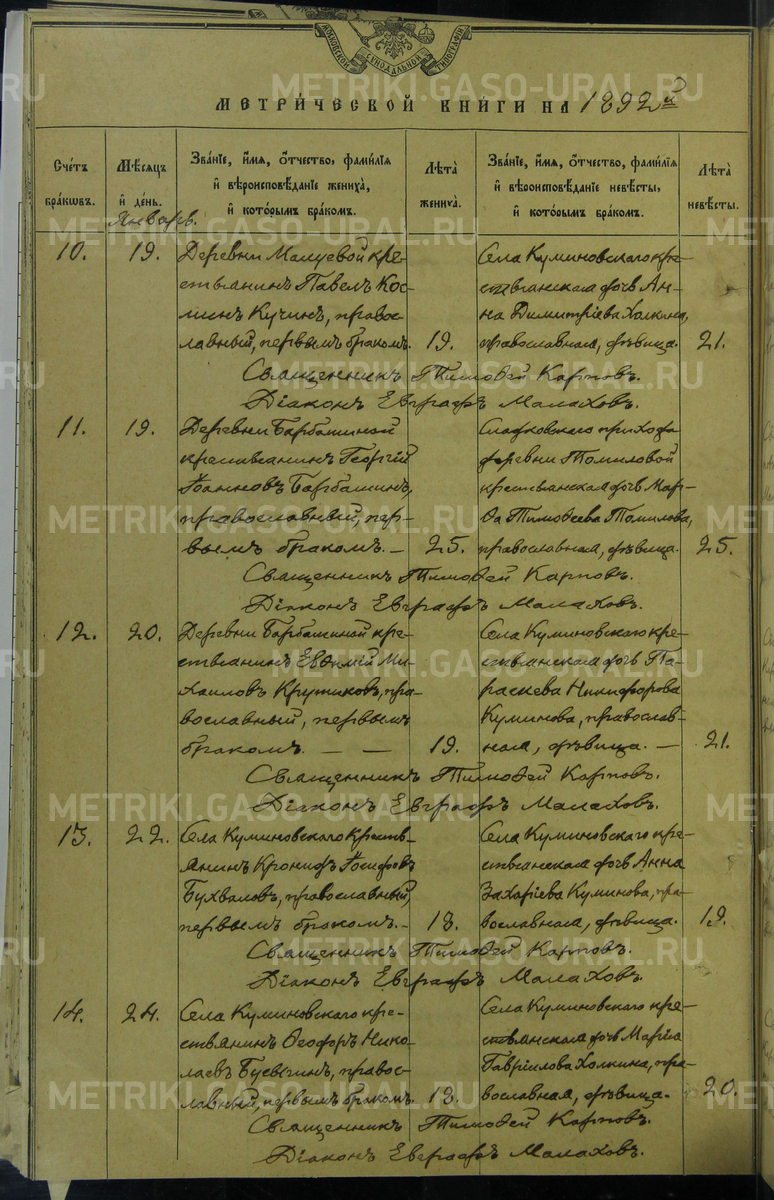 МОСКОВСКОЙ СѴНОДАЛЬНОЙ ТИПОГРАФІИ
МЕТРИ́ЧЕСКОЙ КНИ́ГИ НА 1892й
Сче́тъ бра́кωвъ.
Мѣ́сяцъ и҆ де́нь.
Зва́нїе, и҆́мя, ѻ҆́тчество, фами́лїя и҆ вѣроисповѣ́данїе жениха̀, и҆ кото́рымъ бра́комъ.
Лѣ́та жениха̀.
Зва́нїе, и҆́мя, ѻ҆́тчество, фами́лїя и҆ вѣроисповѣ́данїе невѣ́сты, и҆ кото́рымъ бра́комъ.
Лѣ́та невѣ́сты.
Январь.
10. 19.
Деревни Малуевой кре-
стьянинъ Павелъ Кос-
минъ Кучинъ, правос-
лавный, первымъ бракомъ. 19.
Села Куминовскаго кре-
стьянская дочь Ан-
на Димитріева Холкина,
православная, дѣвица. 21.
Священникъ Тимоѳей Карповъ.
Діаконъ Евграфъ Малаховъ.
11. 19.
Деревни Барбашиной
крестьянинъ Георгій
Іоанновъ Барбашинъ,
православный, пер-
вымъ бракомъ. — 25.
Сладковскаго прихода
деревни Томиловой
крестьянская дочь Мар-
ѳа Тимоѳеева Томилова,
православная, дѣвица. 25.
Священникъ Тимоѳей Карповъ.
Діаконъ Евграфъ Малаховъ.
12. 20.
Деревни Барбашиной кре-
стьянинъ Евѳимій Ми-
хаиловъ Кружиковъ, пра-
вославный, первымъ
бракомъ. — — 19.
Села Куминовскаго кре-
стьянская дочь Па-
раскева Никифорова
Куминова, православ-
ная, дѣвица. — 21.
Священникъ Тимоѳей Карповъ.
Діаконъ Евграфъ Малаховъ.
13. 22.
Села Куминовскаго кресть-
янинъ Кронидъ Іосифовъ
Бухваловъ, православный,
первымъ бракомъ. — 18.
Села Куминовскаго кре-
стьянская дочь Анна
Захаріева Куминова, пра-
вославная, дѣвица. 19.
Священникъ Тимоѳей Карповъ.
Діаконъ Евграфъ Малаховъ.
14. 24.
Села Куминовскаго кре-
стьянинъ Ѳеодоръ Нико-
лаевъ Бусыгинъ, правос-
лавный, первымъ бракомъ. 18.
Села Куминовскаго кре-
стьянская дочь Марія
Гавріилова Холкина, пра-
вославная, дѣвица. 20.
Священникъ Тимоѳей Карповъ.
Діаконъ Евграфъ Малаховъ.
METRIKI.GASO-URAL.RU